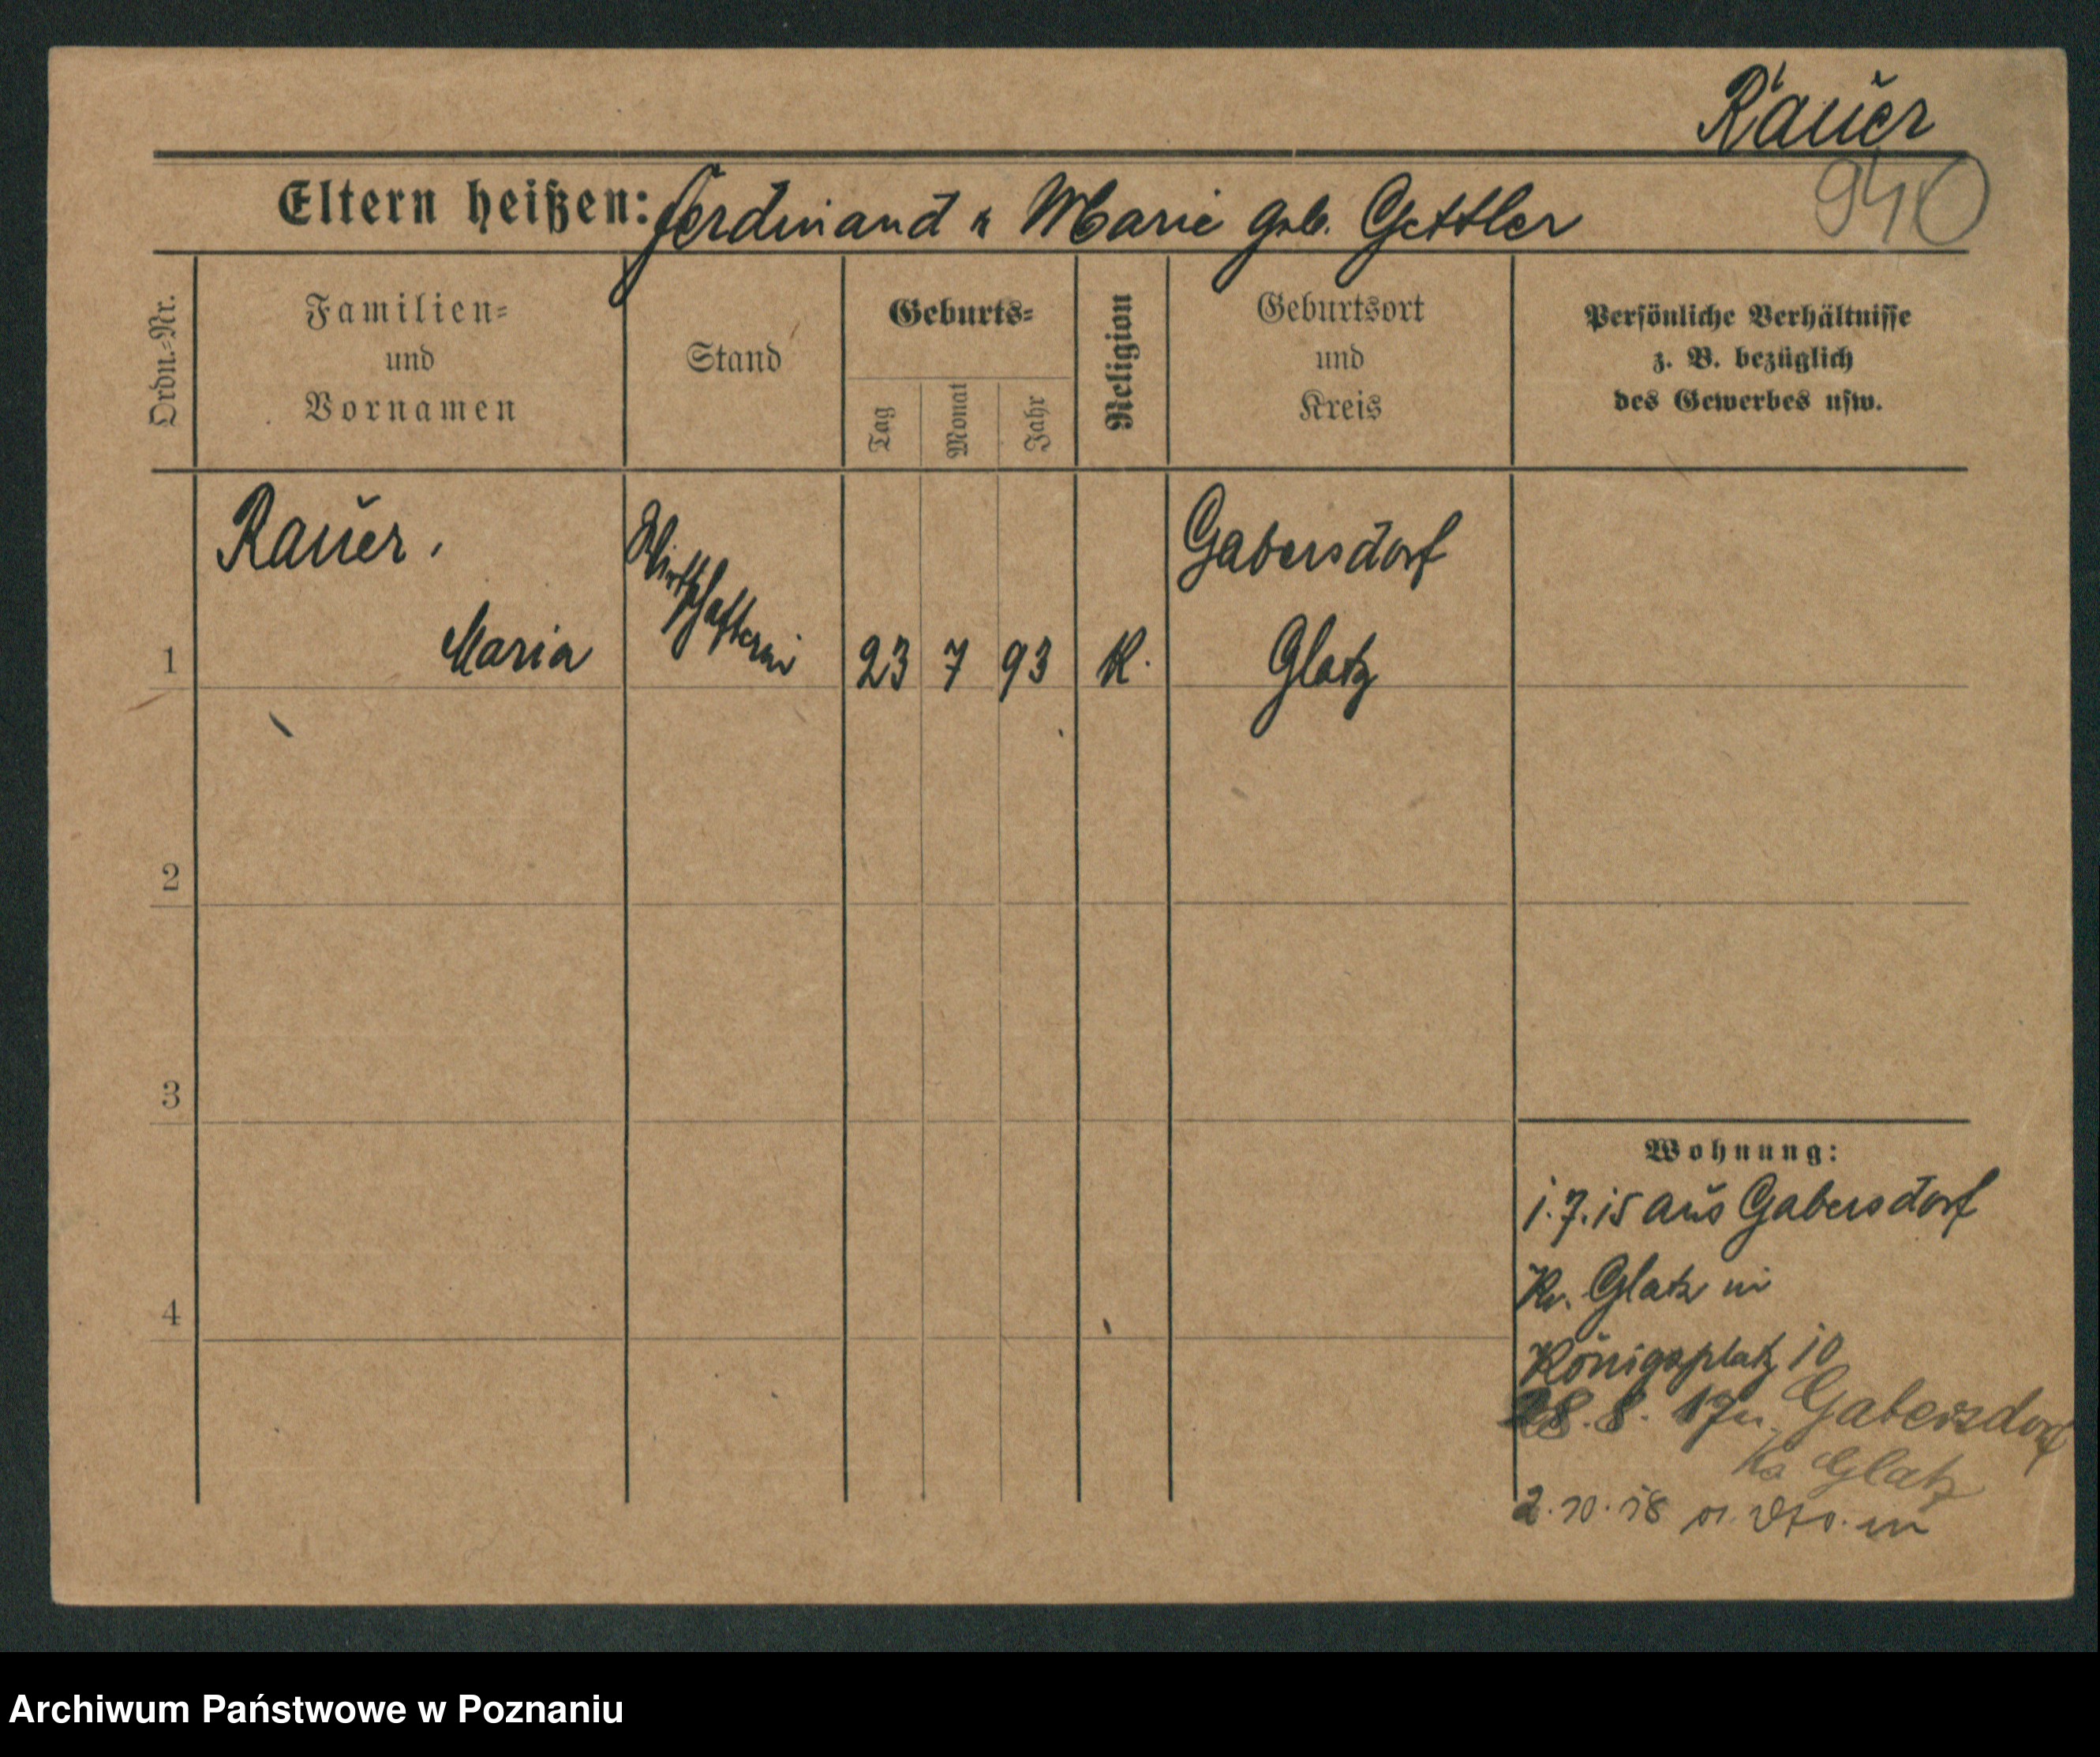 Rauer
940
Eltern heißen: Ferdinand u Marie geb. Gettler
Ordn.-Nr.
Familien- und Vornamen
Stand
Geburts-
Tag
Monat
Jahr
Religion
Geburtsort und Kreis
Persönliche Verhältnisse
z. B. bezüglich
des Gewerbes usw.
1 Rauer, Maria Wirtschafterin 23 7 93 K. Gabersdorf Glatz
2
3
4
Wohnung:
1.7.15 aus Gabersdorf
Kr. Glatz in
Königsplatz 10
28.8.17 n. Gabersdorf
Kr Glatz
2.10.18 v. dto. in
Archiwum Państwowe w Poznaniu